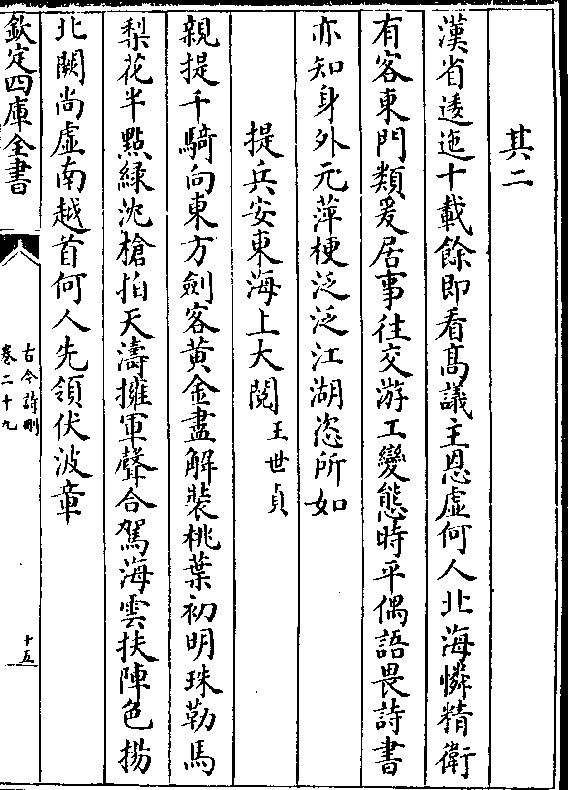 其二
漢省逶迤十載餘即看髙議主恩虛何人北海憐精衛
有客東門類爰居事往交游工變態時平偶語畏詩書
亦知身外元萍梗泛泛江湖恣所如
提兵安東海上大閱王世貞
親提千騎向東方劍客黃金盡解裝桃葉初明珠勒馬
梨花半點綠沈槍拍天濤擁軍聲合駕海雲扶陣色揚
北闕尚虛南越首何人先領伏波章
欽定四庫全書
古今詩刪
卷二十九
十五